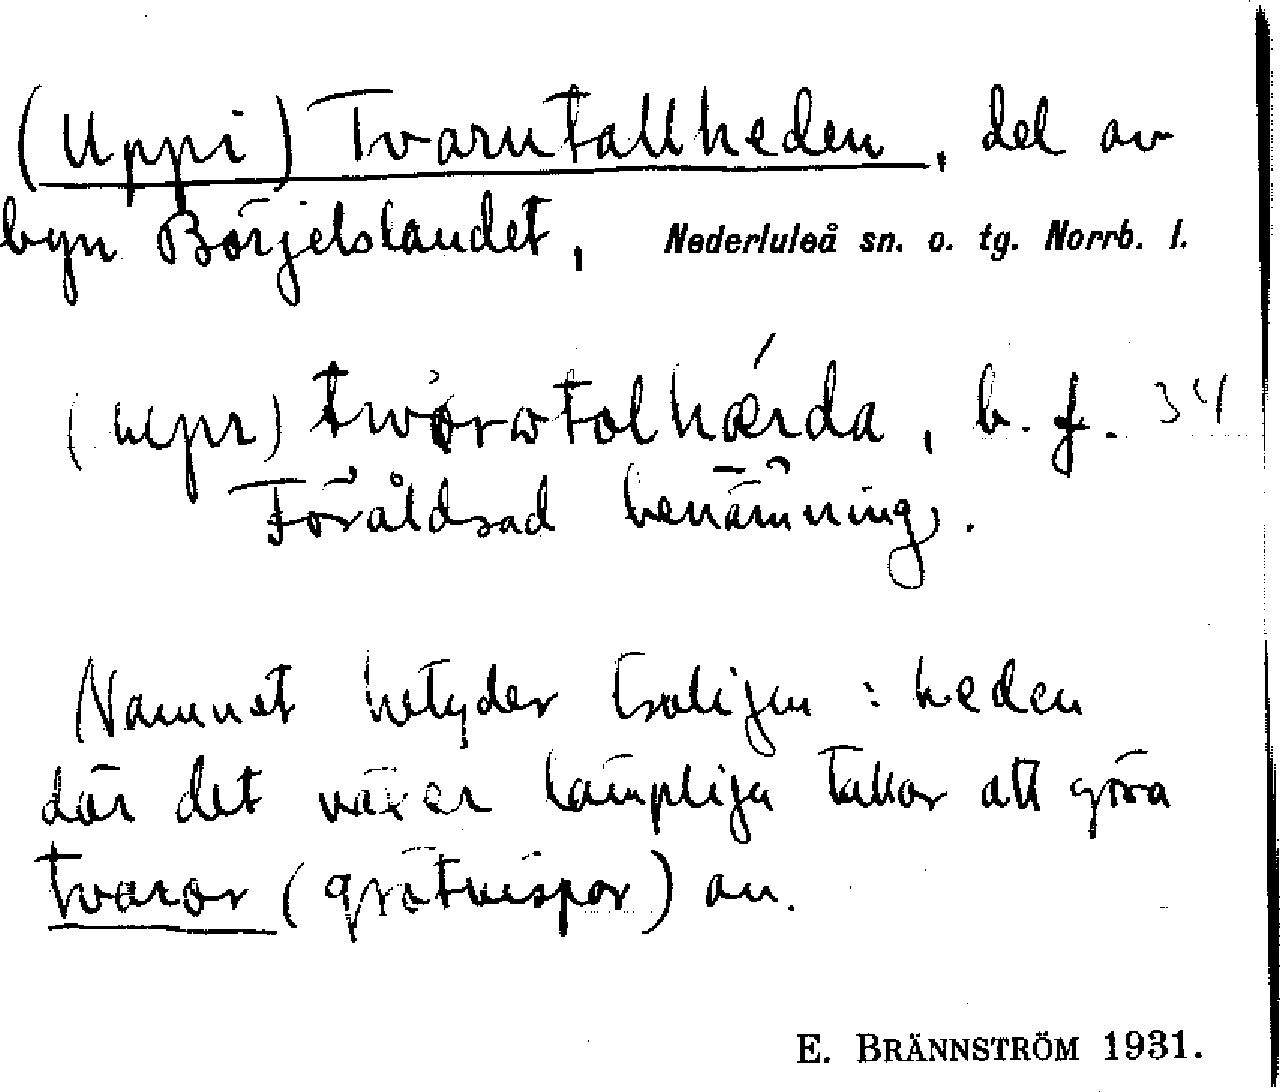 (Uppi) Tvarutallheden, del av
byn Börjelslandet, Nederluleå sn. o. tg. Norrb. l.
(upi) twárotolhǽrda, b. f. 34
Föråldrad benämning.
Namnet betyder troligen : heden
där det växer lämpliga tallar att göra
tvaror (grötvispar) av.
E. BRÄNNSTRÖM 1931.